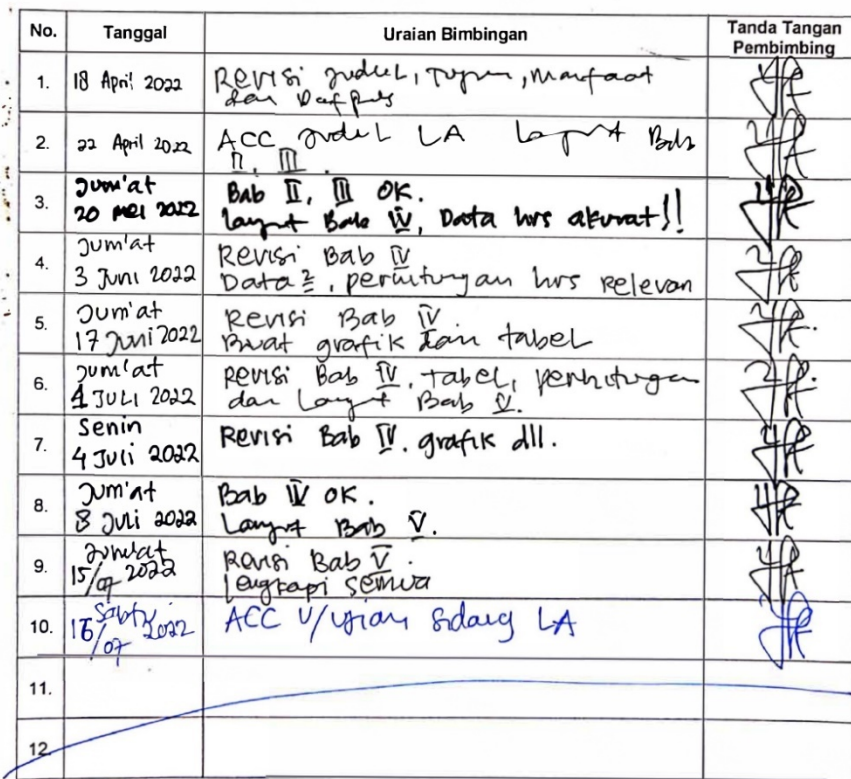 No. Tanggal Uraian Bimbingan Tanda Tangan Pembimbing
1. 18 April 2022 Revisi Judul, Tujuan, Manfaat
dan Dafpus
2. 22 April 2022 ACC Judul LA Lanjut Bab
II, III.
3. Jum'at
20 Mei 2022
Bab II, III OK.
Lanjut Bab IV, Data hrs akurat!!
4. Jum'at
3 Juni 2022
Revisi Bab IV
Data2, perhitungan hrs Relevan
5. Jum'at
17 Juni 2022
Revisi Bab IV
Buat grafik dan tabel
6. Jum'at
1 JULI 2022
Revisi Bab IV, tabel, perhitungan
dan Lanjut Bab V.
7. Senin
4 Juli 2022
Revisi Bab IV. grafik dll.
8. Jum'at
8 Juli 2022
Bab IV OK.
Lanjut Bab V.
9. Jum'at
15/07 2022
Revisi Bab V.
Lengkapi semua
10. Sabtu
16/07 2022
ACC U/ ujian Sidang LA
11.
12.